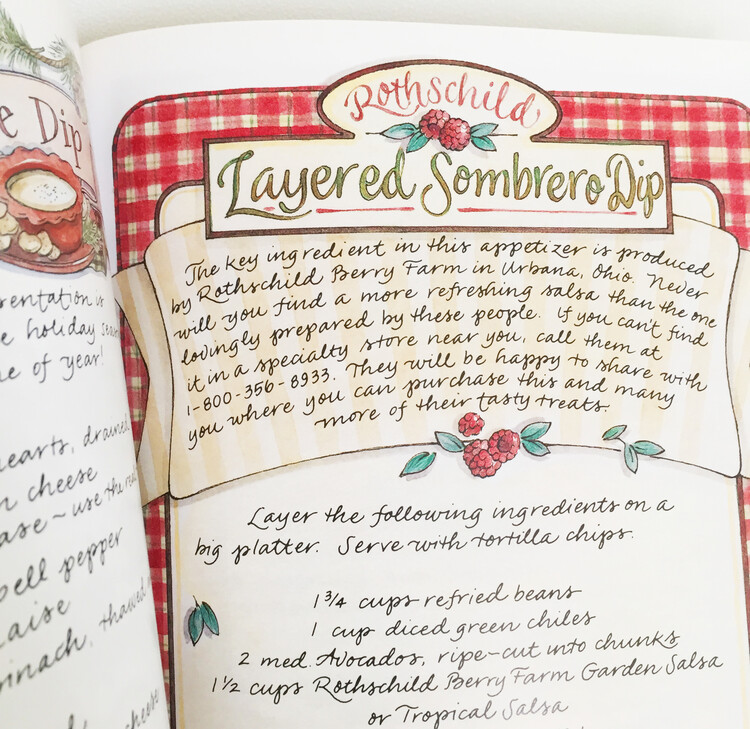 e Dip
esentation is
e holiday
e of year!
hearts, drained
cheese
ase ~ use the
bell pepper
aise
pinach, thawed
cheese
Rothschild
Layered Sombrero Dip
The key ingredient in this appetizer is produced
by Rothschild Berry Farm in Urbana, Ohio. Never
will you find a more refreshing salsa than the one
lovingly prepared by these people. If you can't find
it in a specialty store near you, call them at
1-800-356-8933. They will be happy to share with
you where you can purchase this and many
more of their tasty treats.
Layer the following ingredients on a
big platter. Serve with tortilla chips.
1 3/4 cups refried beans
1 cup diced green chiles
2 med. Avocados, ripe-cut into chunks
1 1/2 cups Rothschild Berry Farm Garden Salsa
or Tropical Salsa